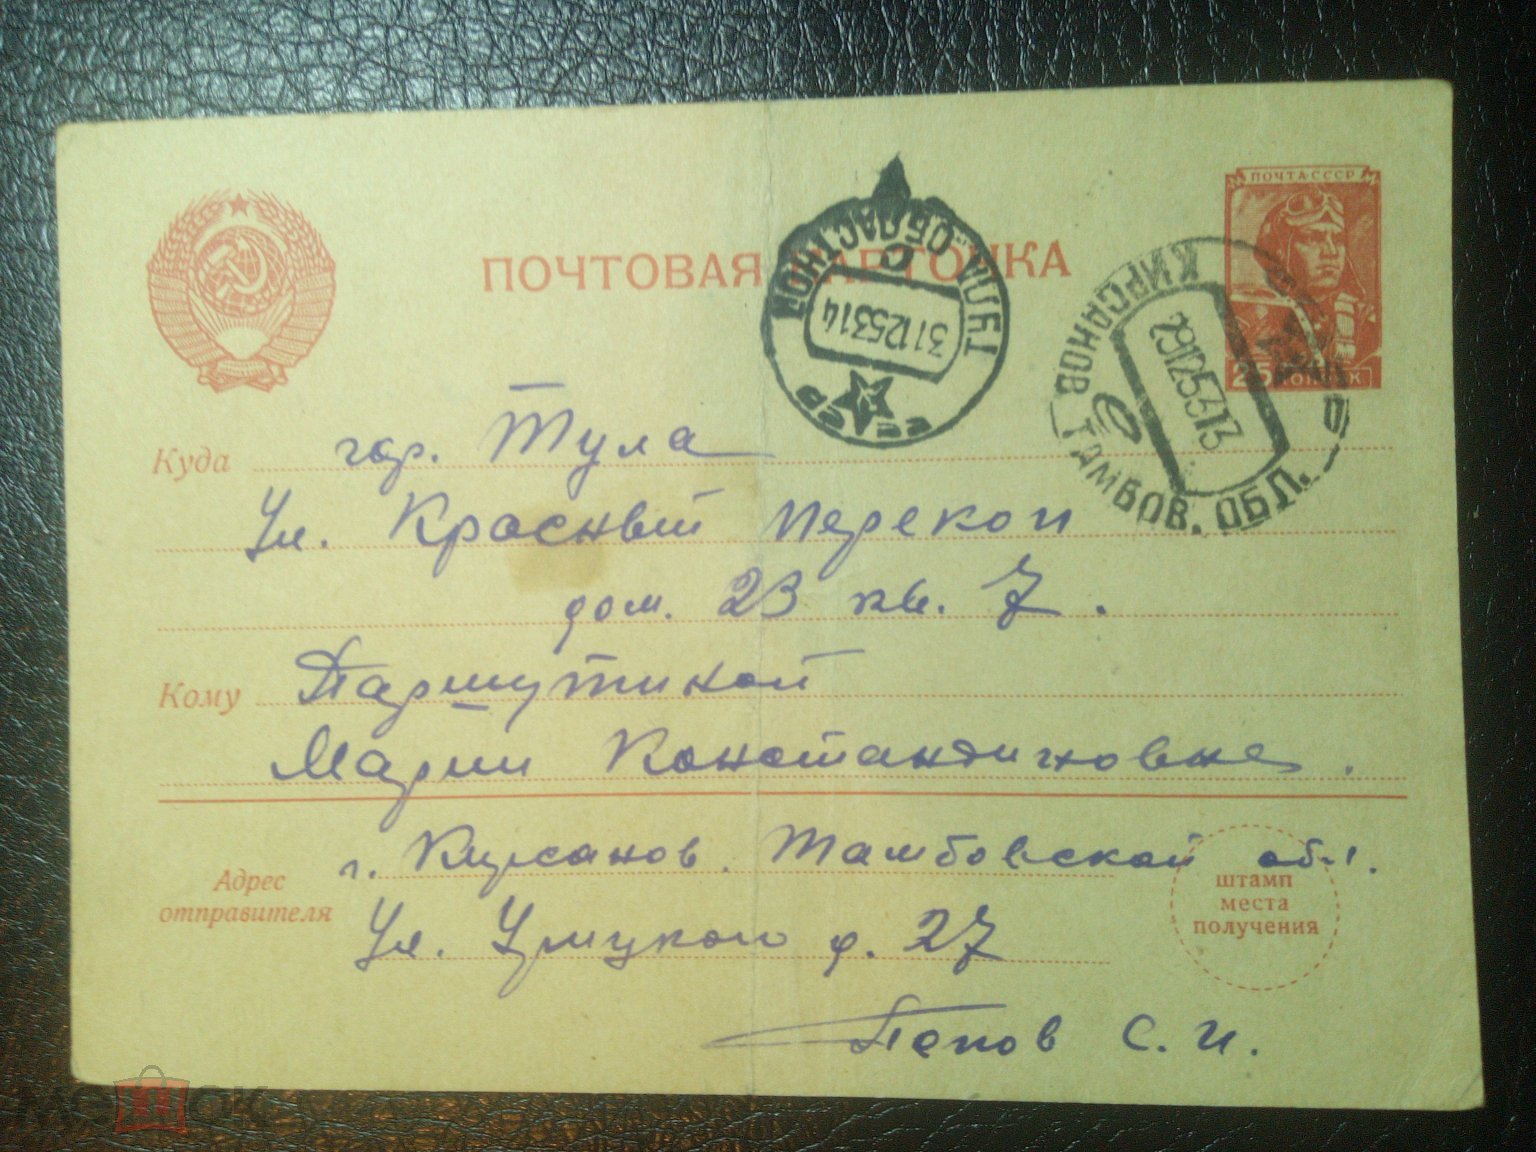 ПОЧТА СССР
25 КОПЕЕК
ПОЧТОВАЯ КАРТОЧКА
ТУЛА ОБЛАСТНОЙ
С
31125314
СССР
КИРСАНОВ ТАМБОВ. ОБЛ.
291253
Куда гор. Тула
Ул. Красный Перекоп
дом. 23 кв. 7.
Кому Паршутиной
Марии Константиновне.
Адрес отправителя
г. Кирсанов. Тамбовской обл.
Ул. Урицкого д. 27
Попов С. И.
штамп
места
получения
мешок